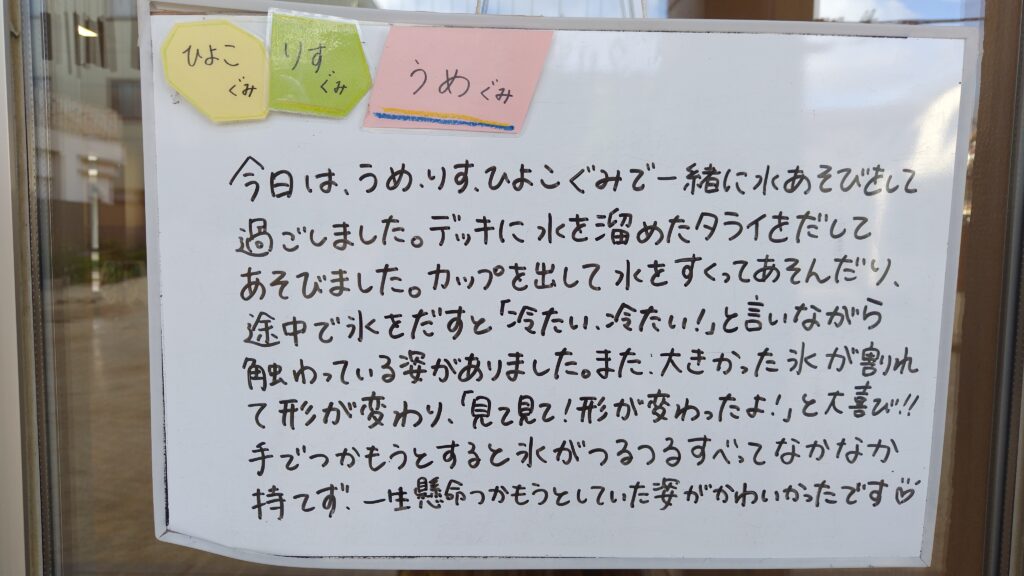 ひよこ
ぐみ
りす
ぐみ
うめぐみ
今日は、うめ、りす、ひよこぐみで一緒に水あそびをして
過ごしました。デッキに水を溜めたタライをだして
あそびました。カップを出して水をすくってあそんだり、
途中で氷をだすと「冷たい、冷たい!」と言いながら
触わっている姿がありました。また、大きかった氷が割れ
て形が変わり、「見て見て!形が変わったよ!」と大喜び!!
手でつかもうとすると氷がつるつるすべってなかなか
持てず、一生懸命つかもうとしていた姿がかわいかったです♡